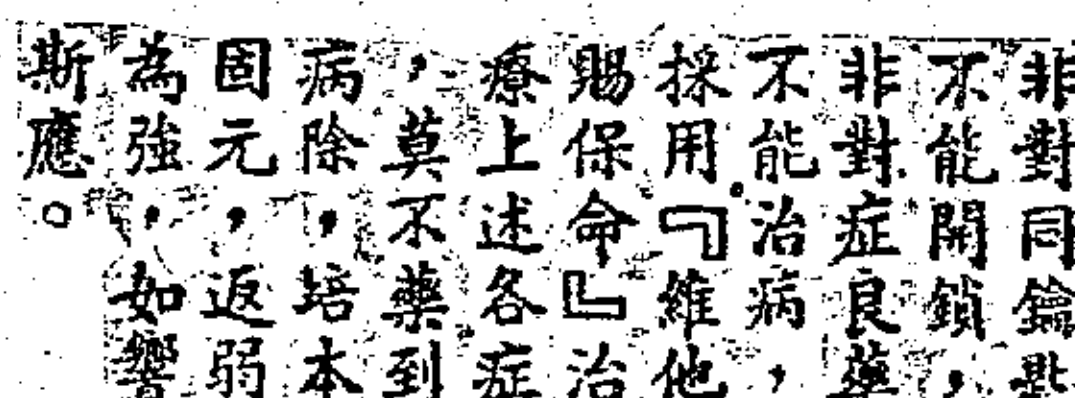 非對同鑰匙
不能開鎖，
非對症良藥
不能治病，
採用『維他
賜保命』治
療上述各症
，莫不藥到
病除，培本
固元，返弱
為強，如響
斯應。